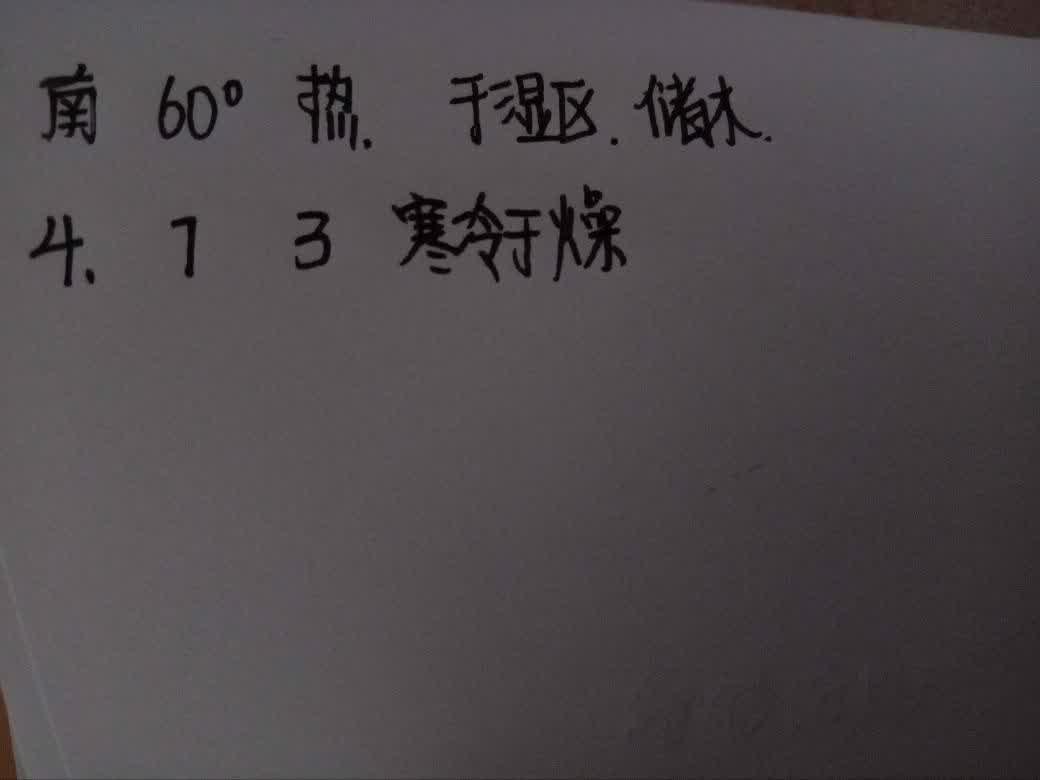 南 60° 热. 干湿区. 储水.
4. 7 3 寒冷干燥